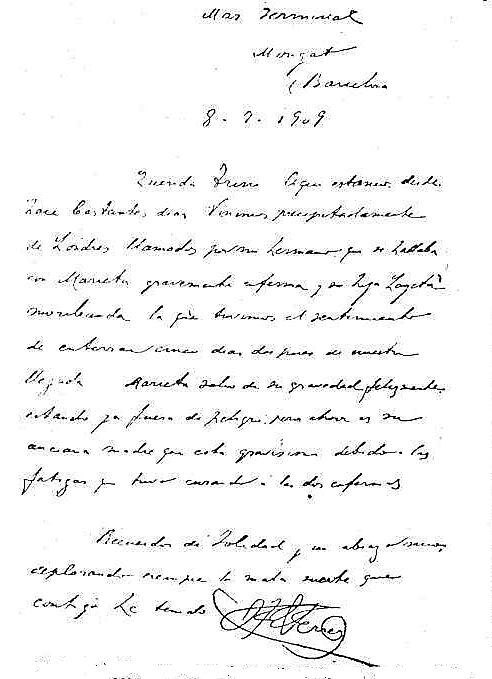 Mas Germinal
Mongat
(Barcelona
8 - 7 - 1909
Querido Aqui estamos desde
hace bastantes dias Vinimos precipitadamente
de Londres llamados por mi hermano que se hallaba
con Marieta gravemente enferma y su hija Layeta
moribunda la que tuvimos el sentimiento
de enterrar cinco dias despues de nuestra
llegada Marieta salio de su gravedad felizmente
estando ya fuera de peligro; pero ahora es su
anciana madre que esta gravisima debido a las
fatigas que tuvo cuidando á las dos enfermas
Recuerdos de Soledad y un abrazo
deplorando siempre la mala suerte que
contigo he tenido F Ferrer